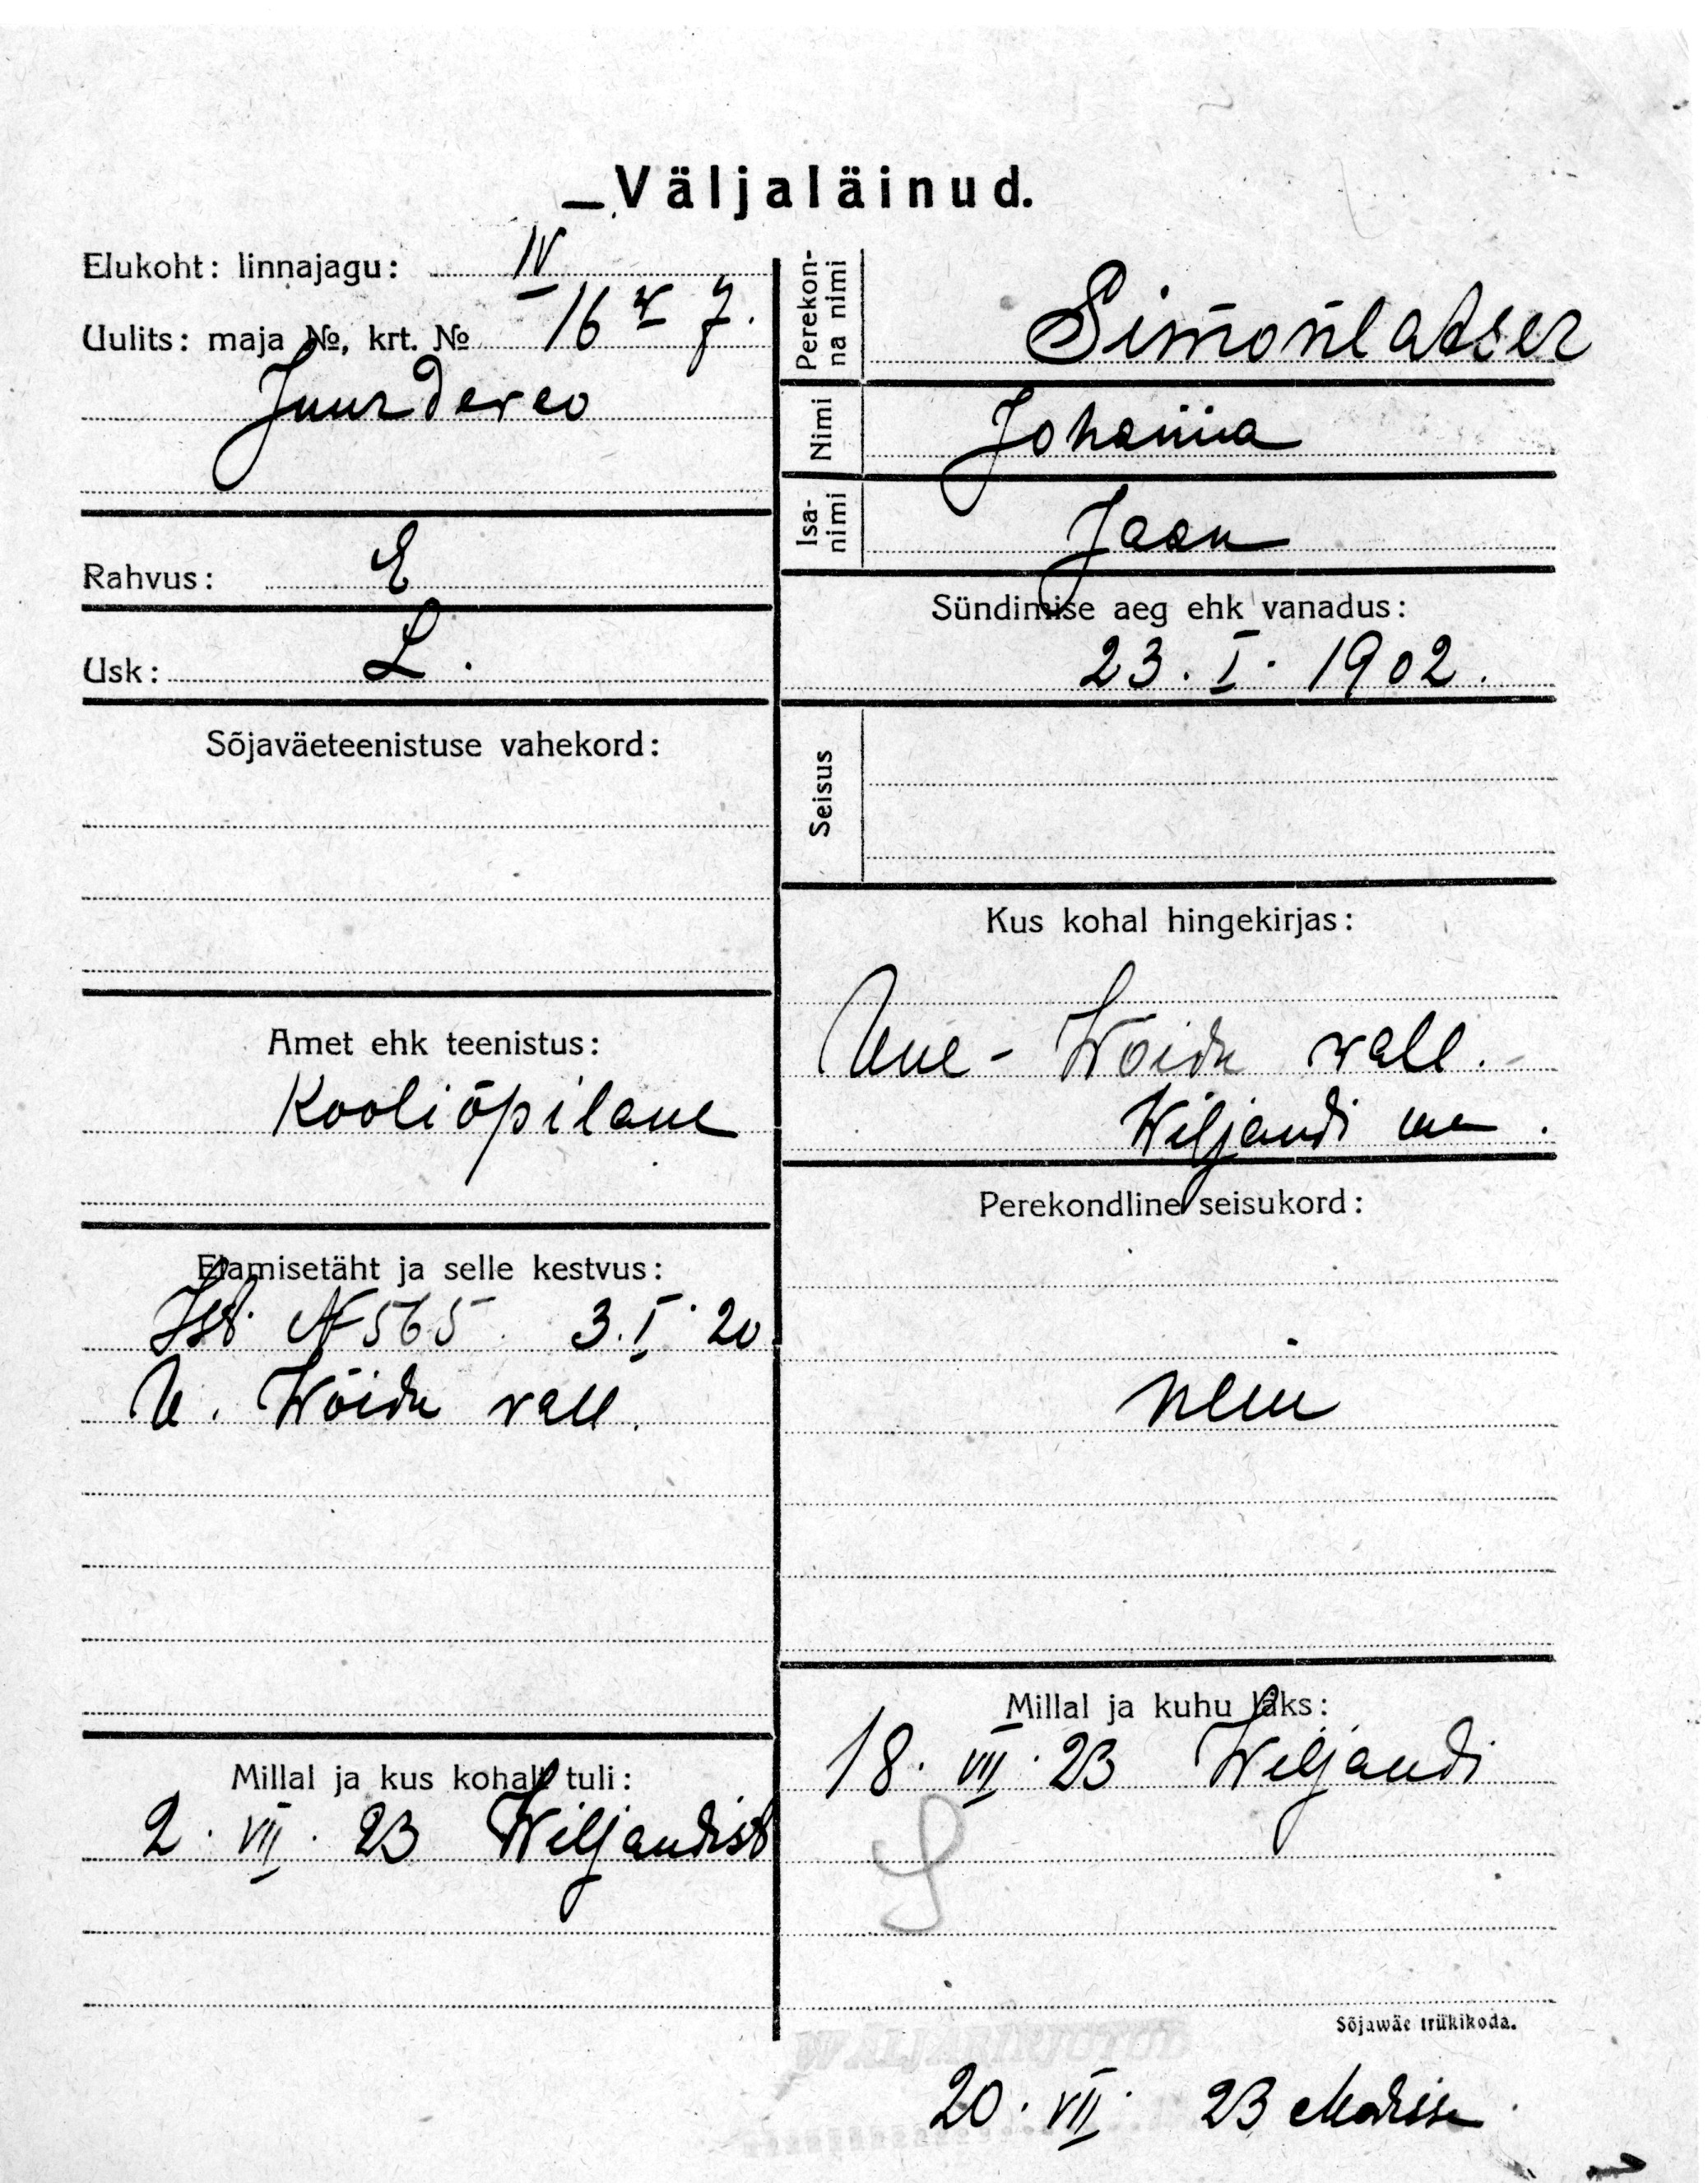 Väljaläinud.
Elukoht: linnajagu: IV
Uulits: maja №, krt. № 16 7.
Juurdeveo
Rahvus: E
Usk: L.
Sõjaväeteenistuse vahekord:
Amet ehk teenistus:
Kooliõpilane
Elamisetäht ja selle kestvus:
Ist. № 565. 3.I.20
U. Wõidu vall.
Millal ja kus kohalt tuli:
2. VII. 23 Wiljandist
Perekon-
na nimi
Simonlatser
Nimi Johanna
Isa-
nimi
Jaan
Sündimise aeg ehk vanadus:
23. I. 1902.
Seisus
Kus kohal hingekirjas:
Uue-Wõidu vall.
Wiljandi m.
Perekondline seisukord:
neiu
Millal ja kuhu läks:
18. VII. 23 Wiljandi
Sõjawäe trükikoda.
WÄLJAKIRJUTUD
20. VII. 23